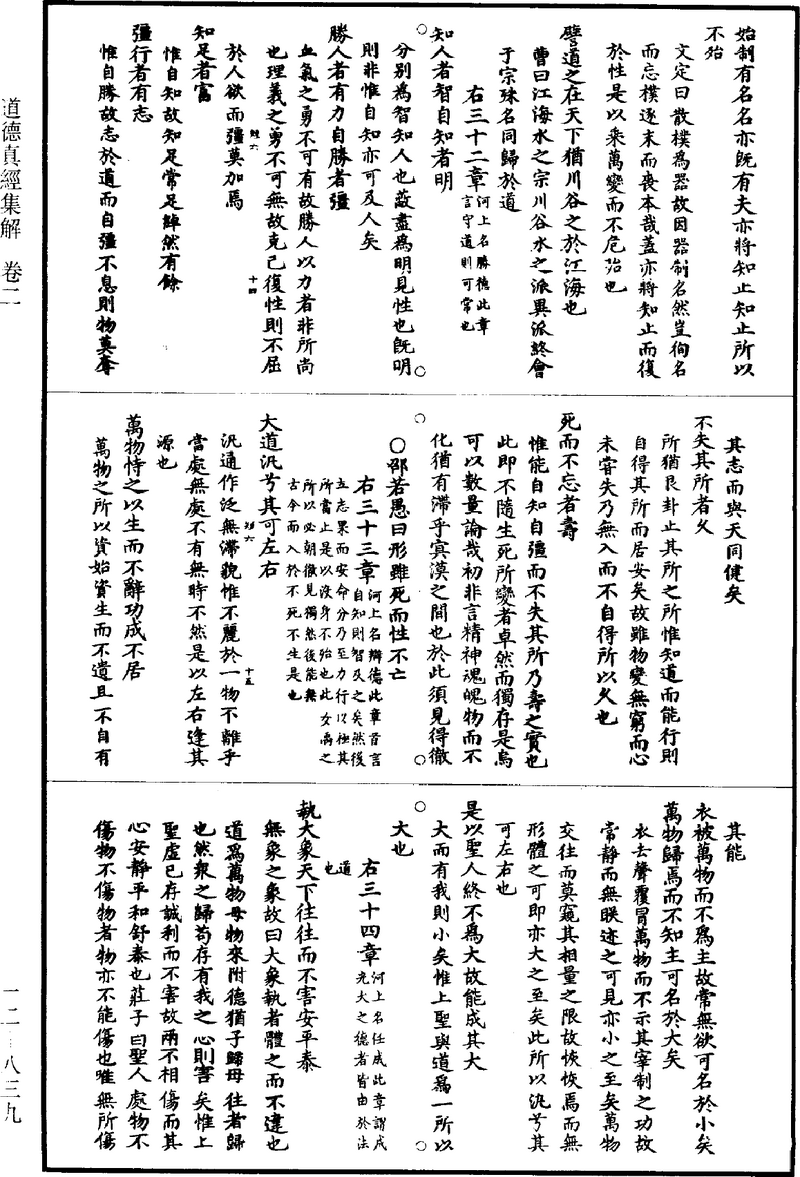 始制有名名亦既有夫亦將知止知止所以
不殆
文定曰散樸為器故因器制名然豈徇名
而忘樸逐末而喪本哉蓋亦將知止而復
於性是以乘萬變而不危殆也
譬道之在天下猶川谷之於江海也
曹曰江海水之宗川谷水之派異派終會
于宗殊名同歸於道
右三十二章河上名勝德此章
言守道則可常也
知人者智自知者明
分別為智知人也蔽盡為明見性也既明
則非惟自知亦可及人矣
勝人者有力自勝者彊
血氣之勇不可有故勝人以力者非所尚
也理義之勇不可無故克己復性則不屈
於人欲而彊莫加焉
知足者富
惟自知故知足常足綽然有餘
彊行者有志
惟自勝故志於道而自彊不息則物莫奪
其志而與天同健矣
不失其所者久
所猶艮卦止其所之所惟知道而能行則
自得其所而居安矣故雖物變無窮而心
未嘗失乃無入而不自得所以久也
死而不忘者壽
惟能自知自彊而不失其所乃壽之實也
此即不隨生死所變者卓然而獨存是烏
可以數量論哉初非言精神魂魄物而不
化猶有滯乎寞漠之間也於此須見得徹
○邵若愚曰形雖死而性不亡
右三十三章河上名辯德此章首言
自知則智及之矣然後
立志果而安命分乃至力行以極其
所當止是以沒身不殆也此女禹之
所以必朝徹見獨然後能無
古今而入於不死不生是也
大道汎兮其可左右
汎通作泛無滯貌惟不麗於一物不離乎
當處無處不有無時不然是以左右逢其
源也
萬物恃之以生而不辭功成不居
萬物之所以資始資生而不遺且不自有
其能
衣被萬物而不為主故常無欲可名於小矣
萬物歸焉而不知主可名於大矣
衣去聲覆冒萬物而不示其宰制之功故
常靜而無朕迹之可見亦小之至矣萬物
交往而莫窺其相量之限故恢恢焉而無
形體之可即亦大之至矣此所以汎兮其
可左右也
是以聖人終不為大故能成其大
大而有我則小矣惟上聖與道為一所以
大也
右三十四章河上名任成此章謂成
光大之德者皆由於法
道
也
執大象天下往往而不害安平泰
無象之象故曰大象執者體之而不違也
道為萬物母物來附德猶子歸母往者歸
也然眾之歸苟存有我之心則害矣惟上
聖虛已存誠利而不害故兩不相傷而其
心安靜平和舒泰也莊子曰聖人處物不
傷物不傷物者物亦不能傷也唯無所傷
道德真經集解　卷二
一二—八三九